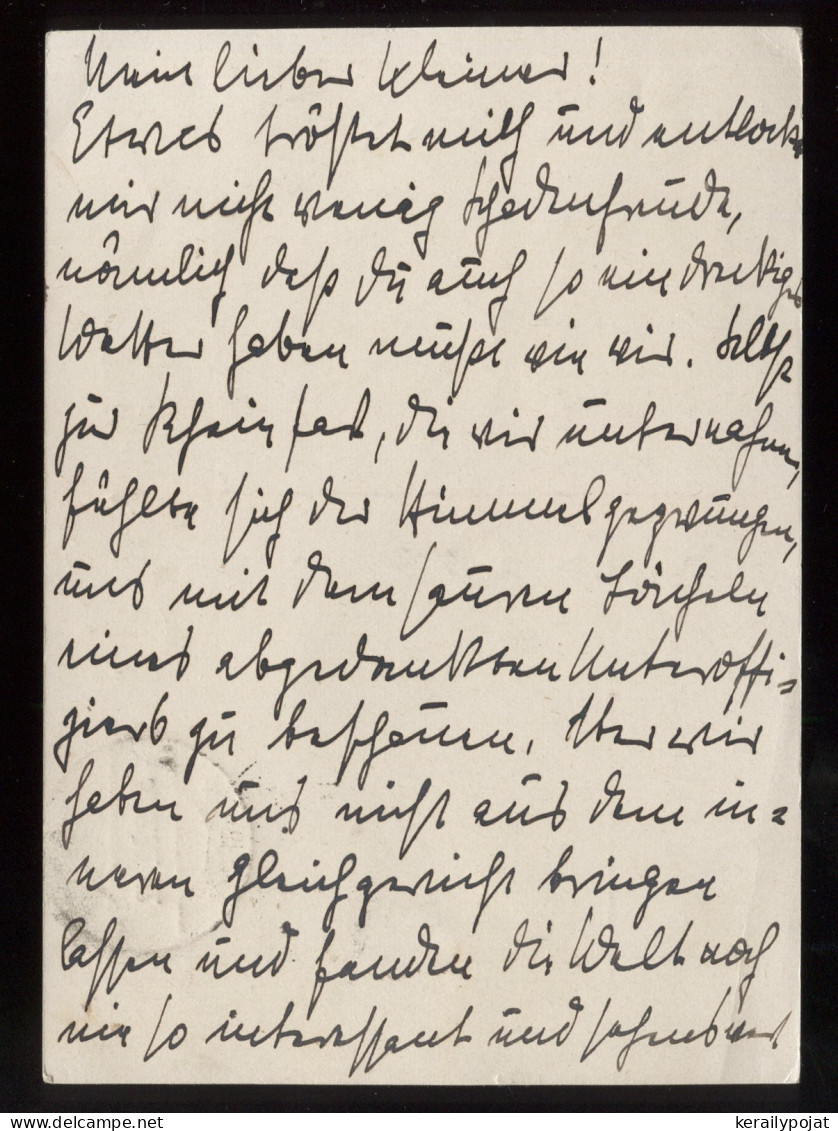 Mein lieber Kleiner!
Etwas tröstet mich und entlockt
mir nicht wenig Schadenfreude,
nämlich daß du auch so ein dreckiges
Wetter haben mußt wie wir. Selbst
zur Rheinfart, die wir unternahmen,
fühlte sich der Himmel gezwungen,
uns mit dem sauren Lächeln
eines abgedankten Unteroffi=
ziers zu beschauen. Aber wir
haben uns nicht aus dem in=
neren Gleichgewicht bringen
lassen und fanden die Welt noch
nie so interessant und sehenswert
www.kerailypojat